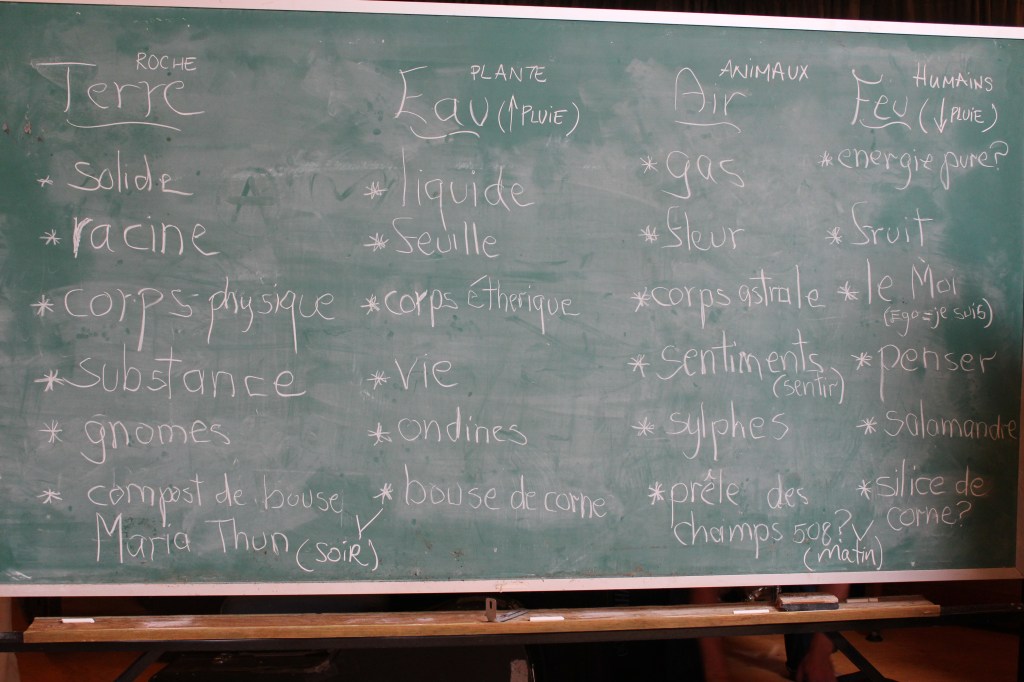 ROCHE
Terre
* solide
* racine
* corps physique
* substance
* gnomes
* compost de bouse
Maria Thun (soir) √
PLANTE
Eau (↑ PLUIE)
* liquide
* feuille
* corps étherique
* vie
* ondines
* bouse de corne
ANIMAUX
Air
* gas
* fleur
* corps astrale
* sentiments
(sentir)
* sylphes
* prêle des
champs 508? √
(matin)
HUMAINS
Feu (↓ PLUIE)
* energie pure?
* fruit
* le Moi
(Ego=je suis)
* penser
* salamandre
* silice de
corne?